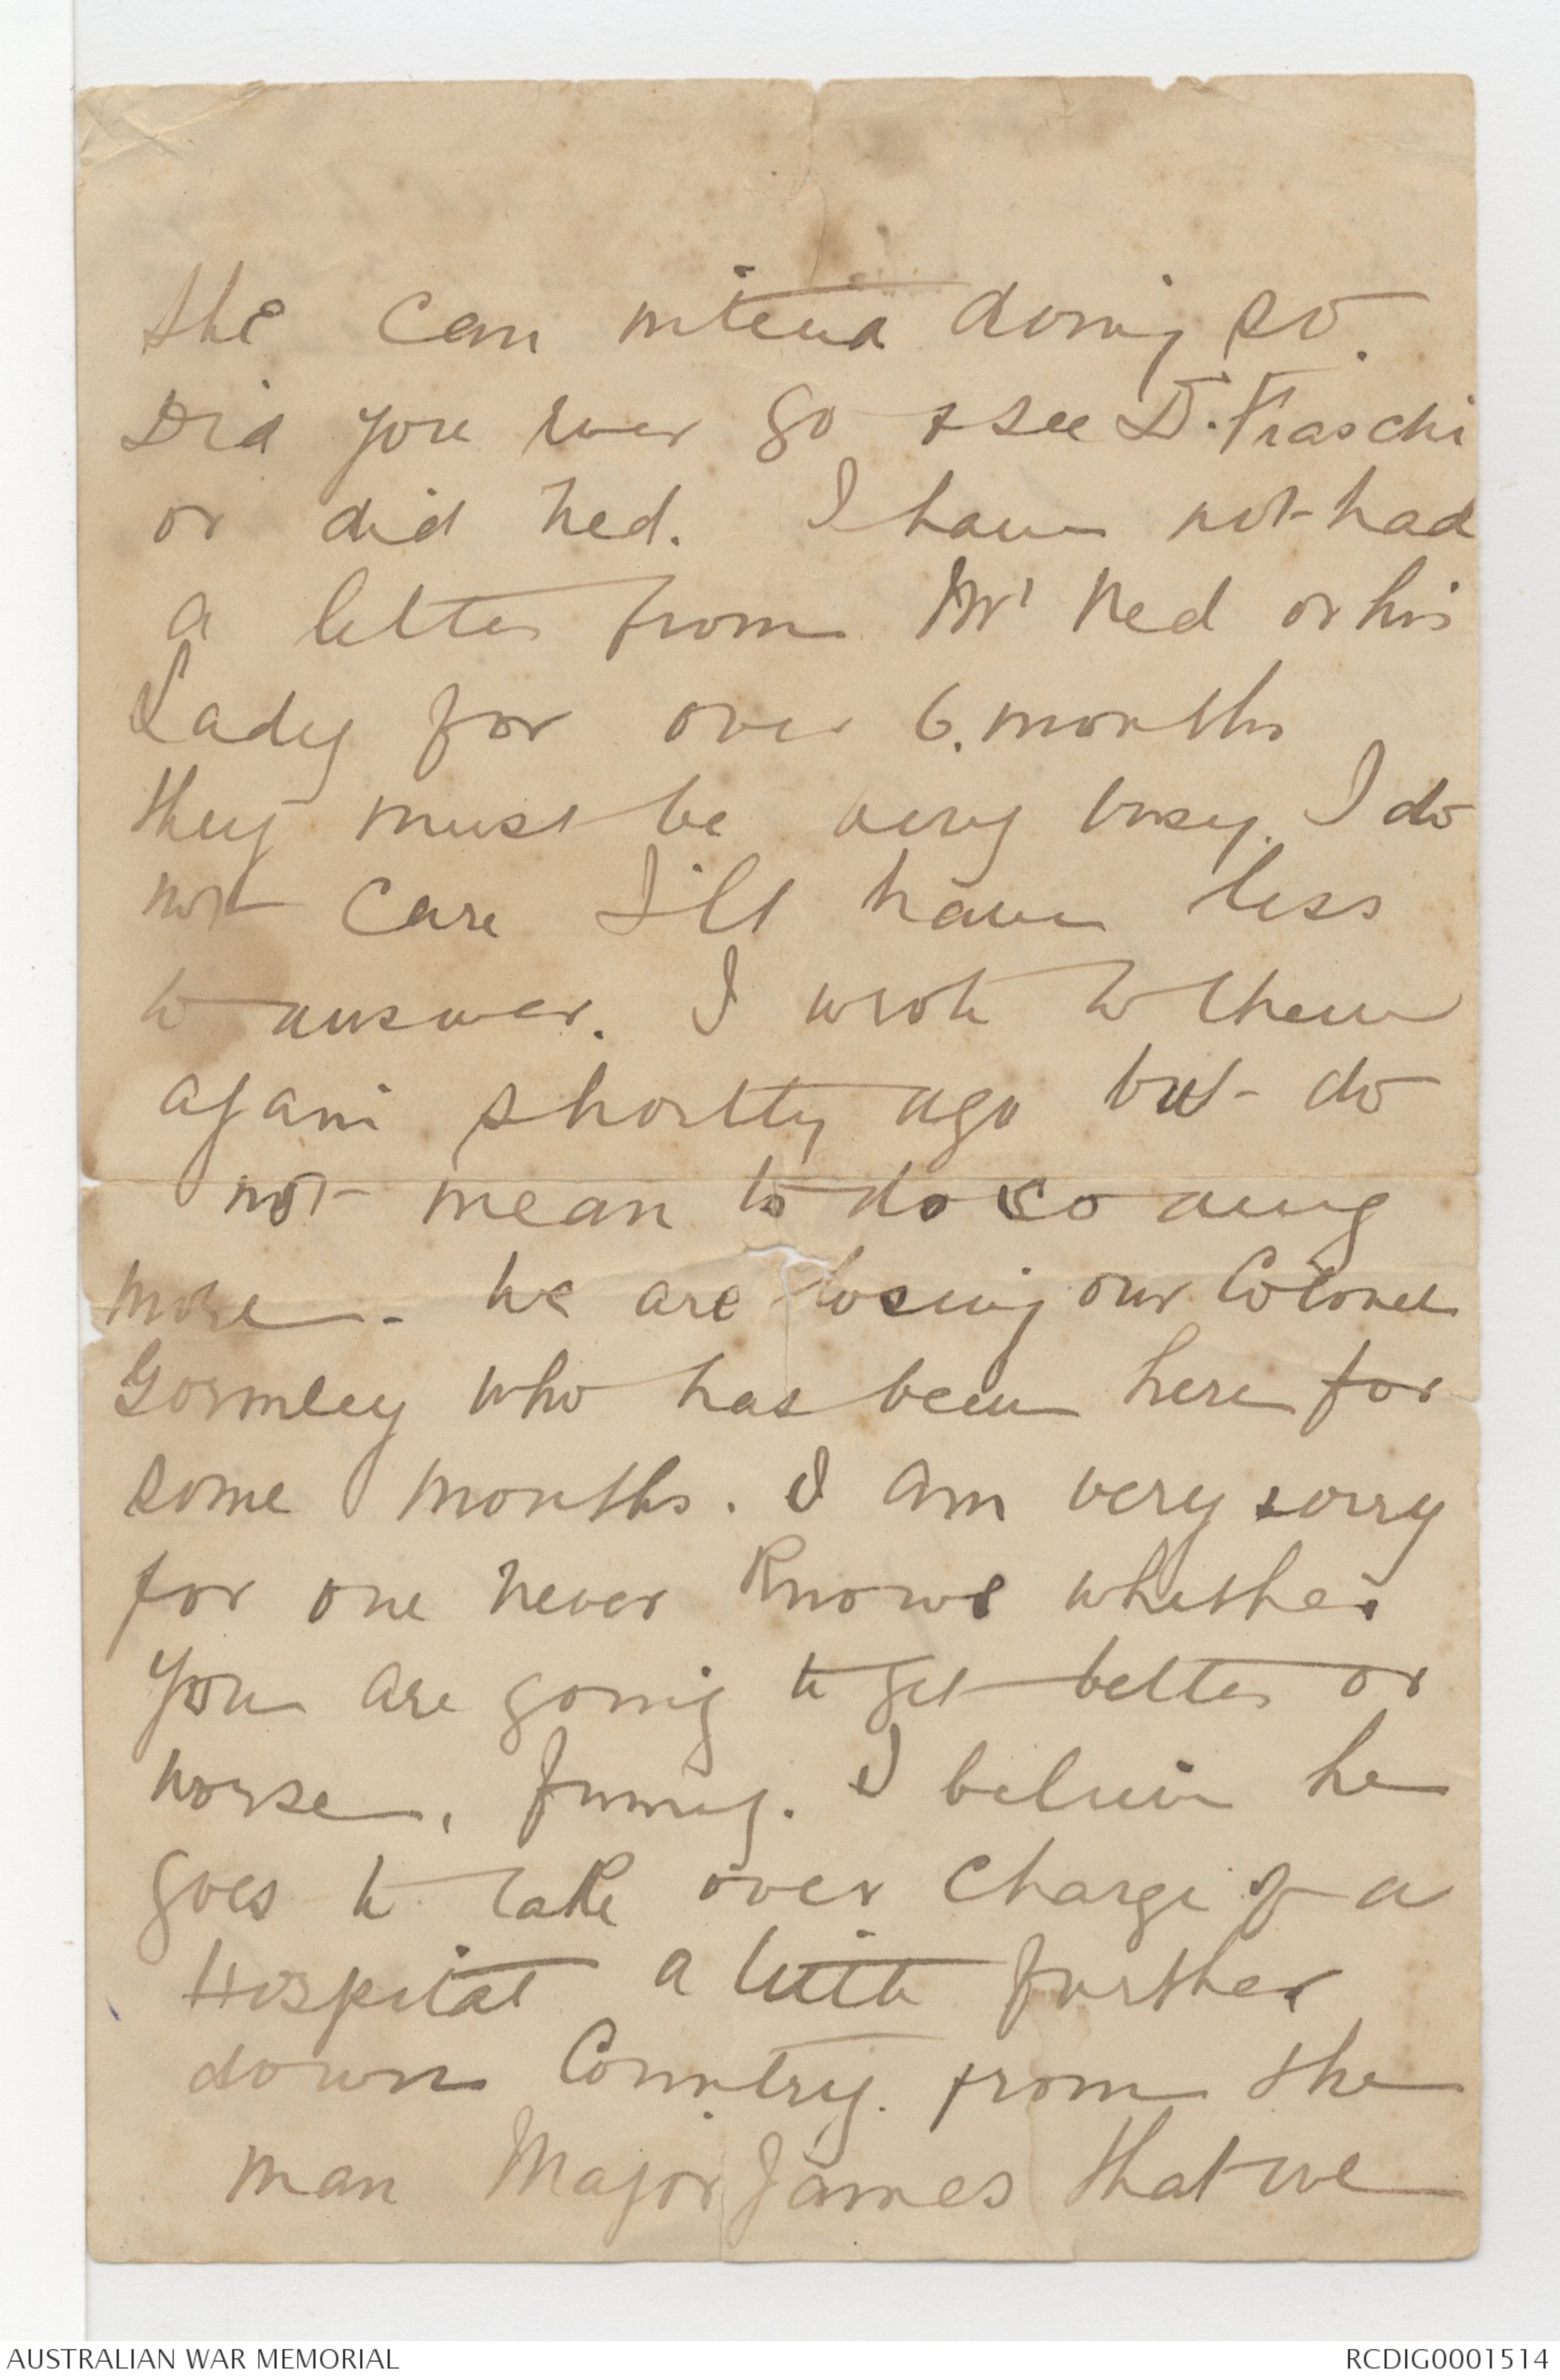 she can intend doing so.
Did you ever go & see Dr. Fiaschi
or did Ned. I have not had
a letter from Mr Ned or his
Lady for over 6. months
they must be very busy. I do
not care I'll have less
to answer. I wrote to them
again shortly ago but do
not mean to do so any
more - We are losing our Colonel
Gormley who has been here for
some months. I am very sorry
for one never knows whether
you are going to get better or
worse, funny. I believe he
goes to take over charge of a
Hospital a little further
down Country. from the
man Major James that we
AUSTRALIAN WAR MEMORIAL
RCDIG0001514